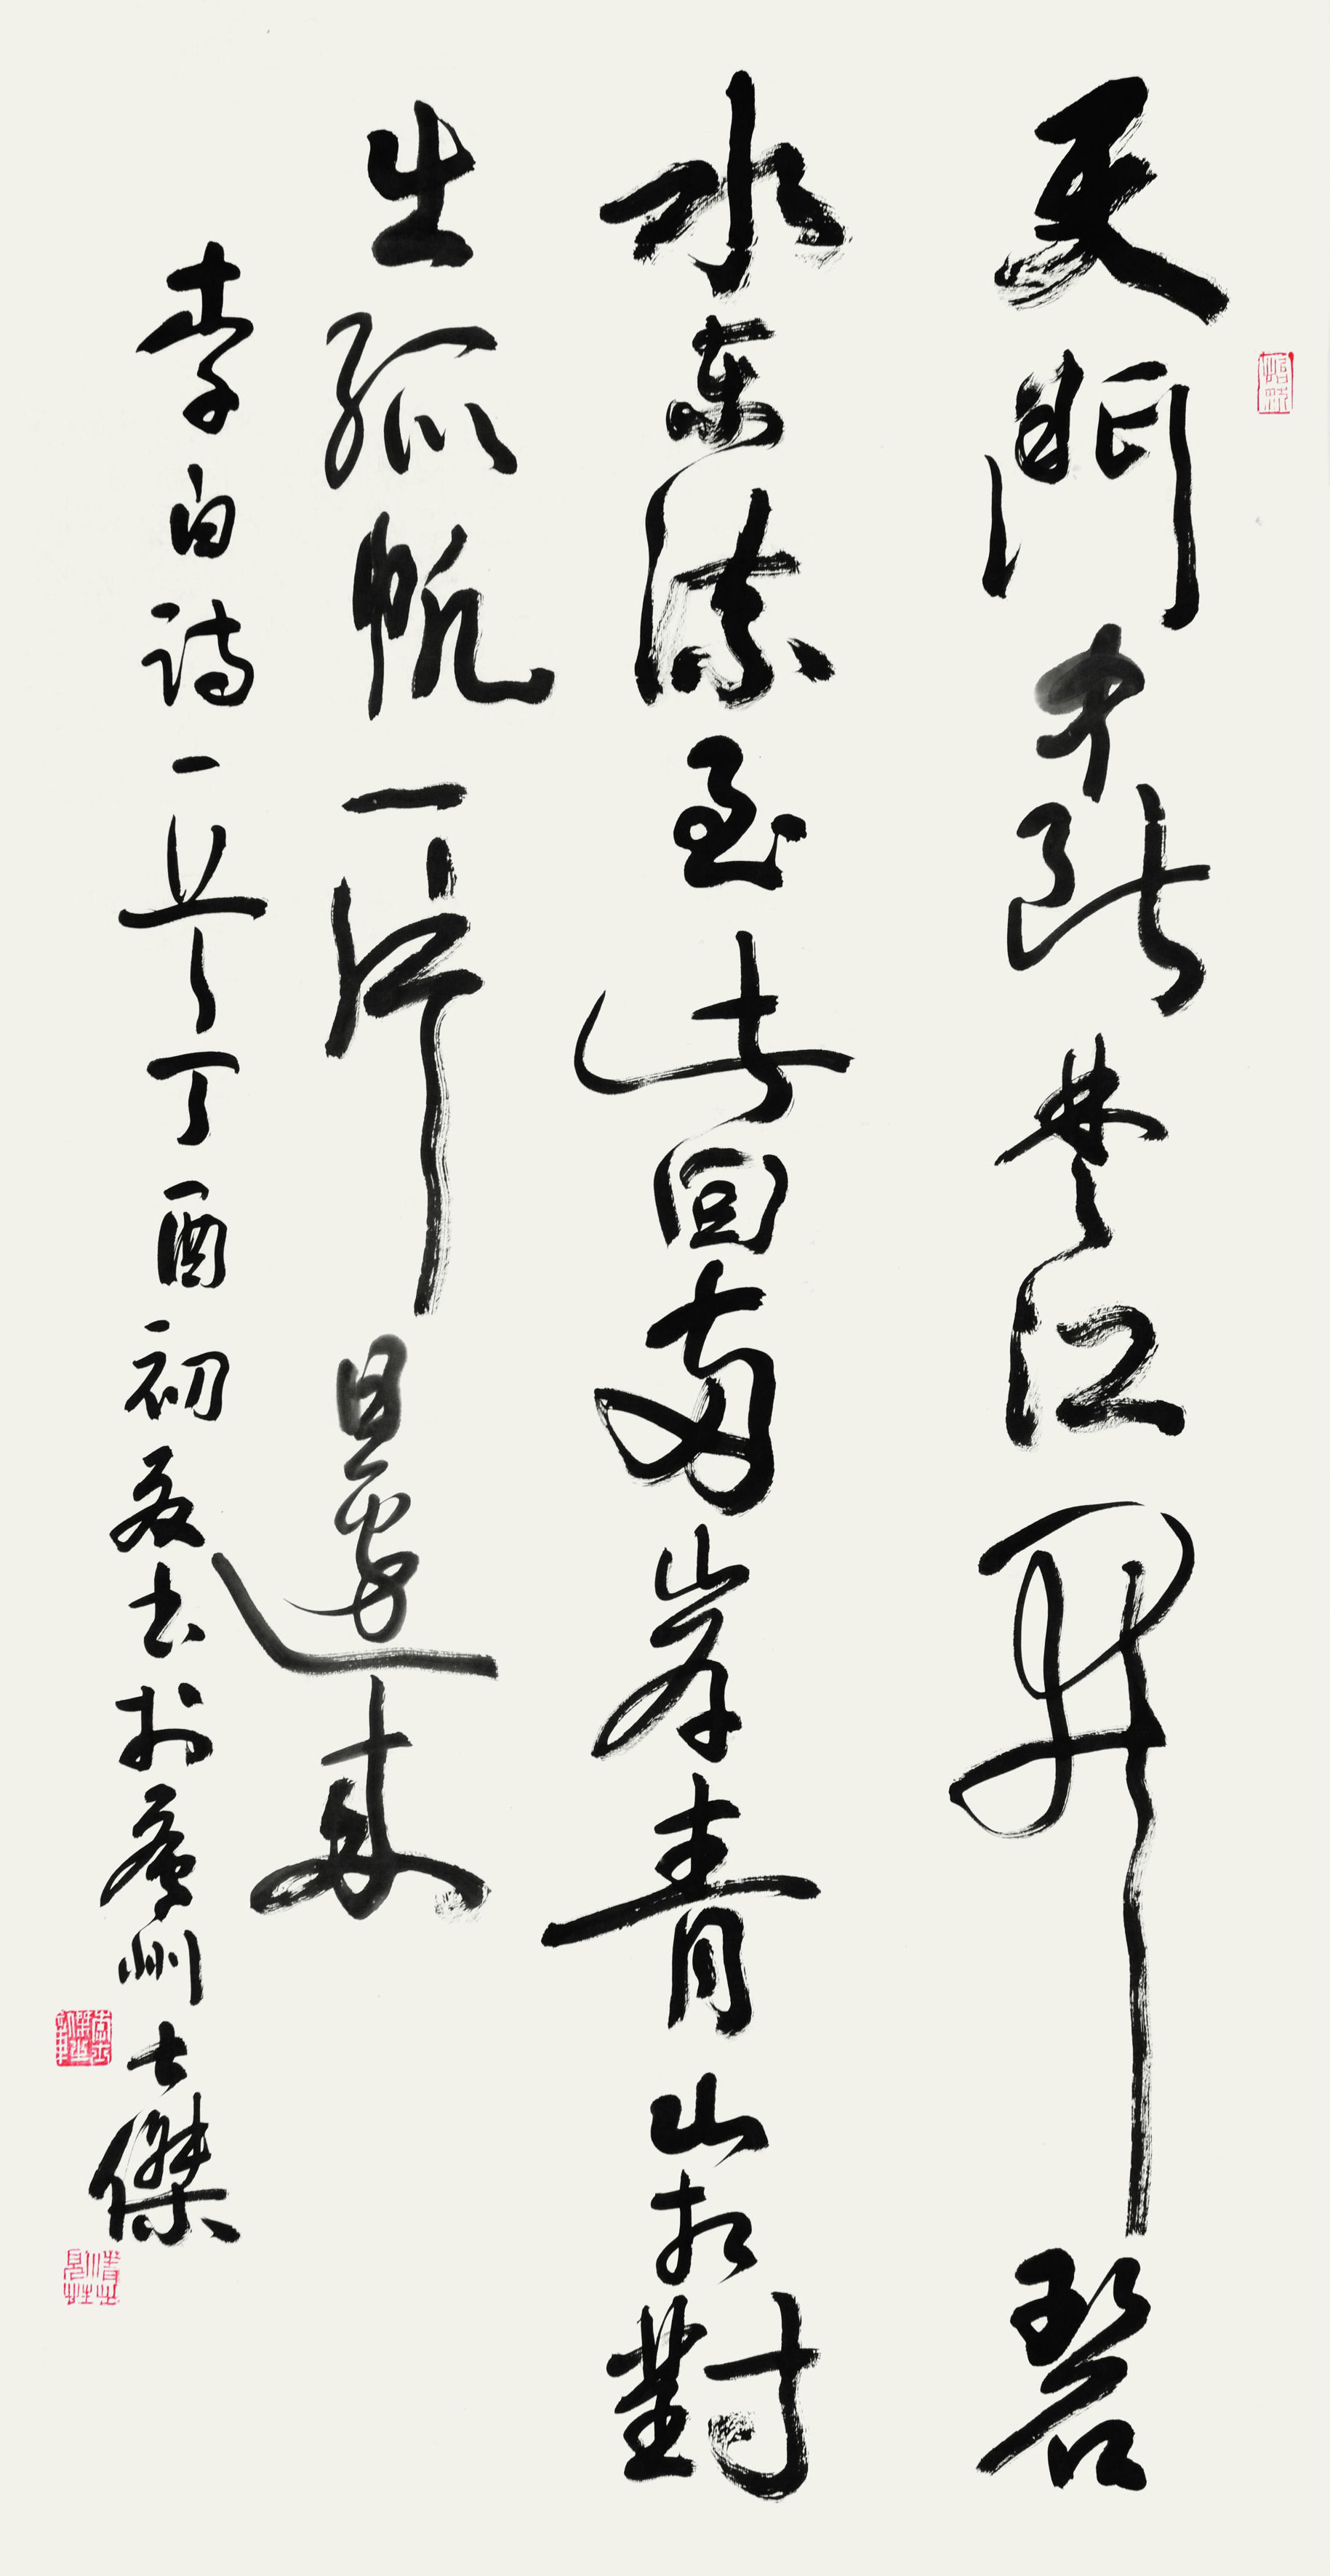 天門中斷楚江開碧
水東流至此回兩岸青山相對
出孤帆一片日邊來
李白詩一首丁酉初夏書於廬州士傑